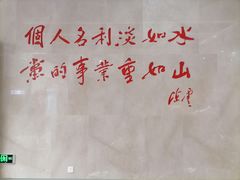 個人名利淡如水
党的事業重如山
陈云